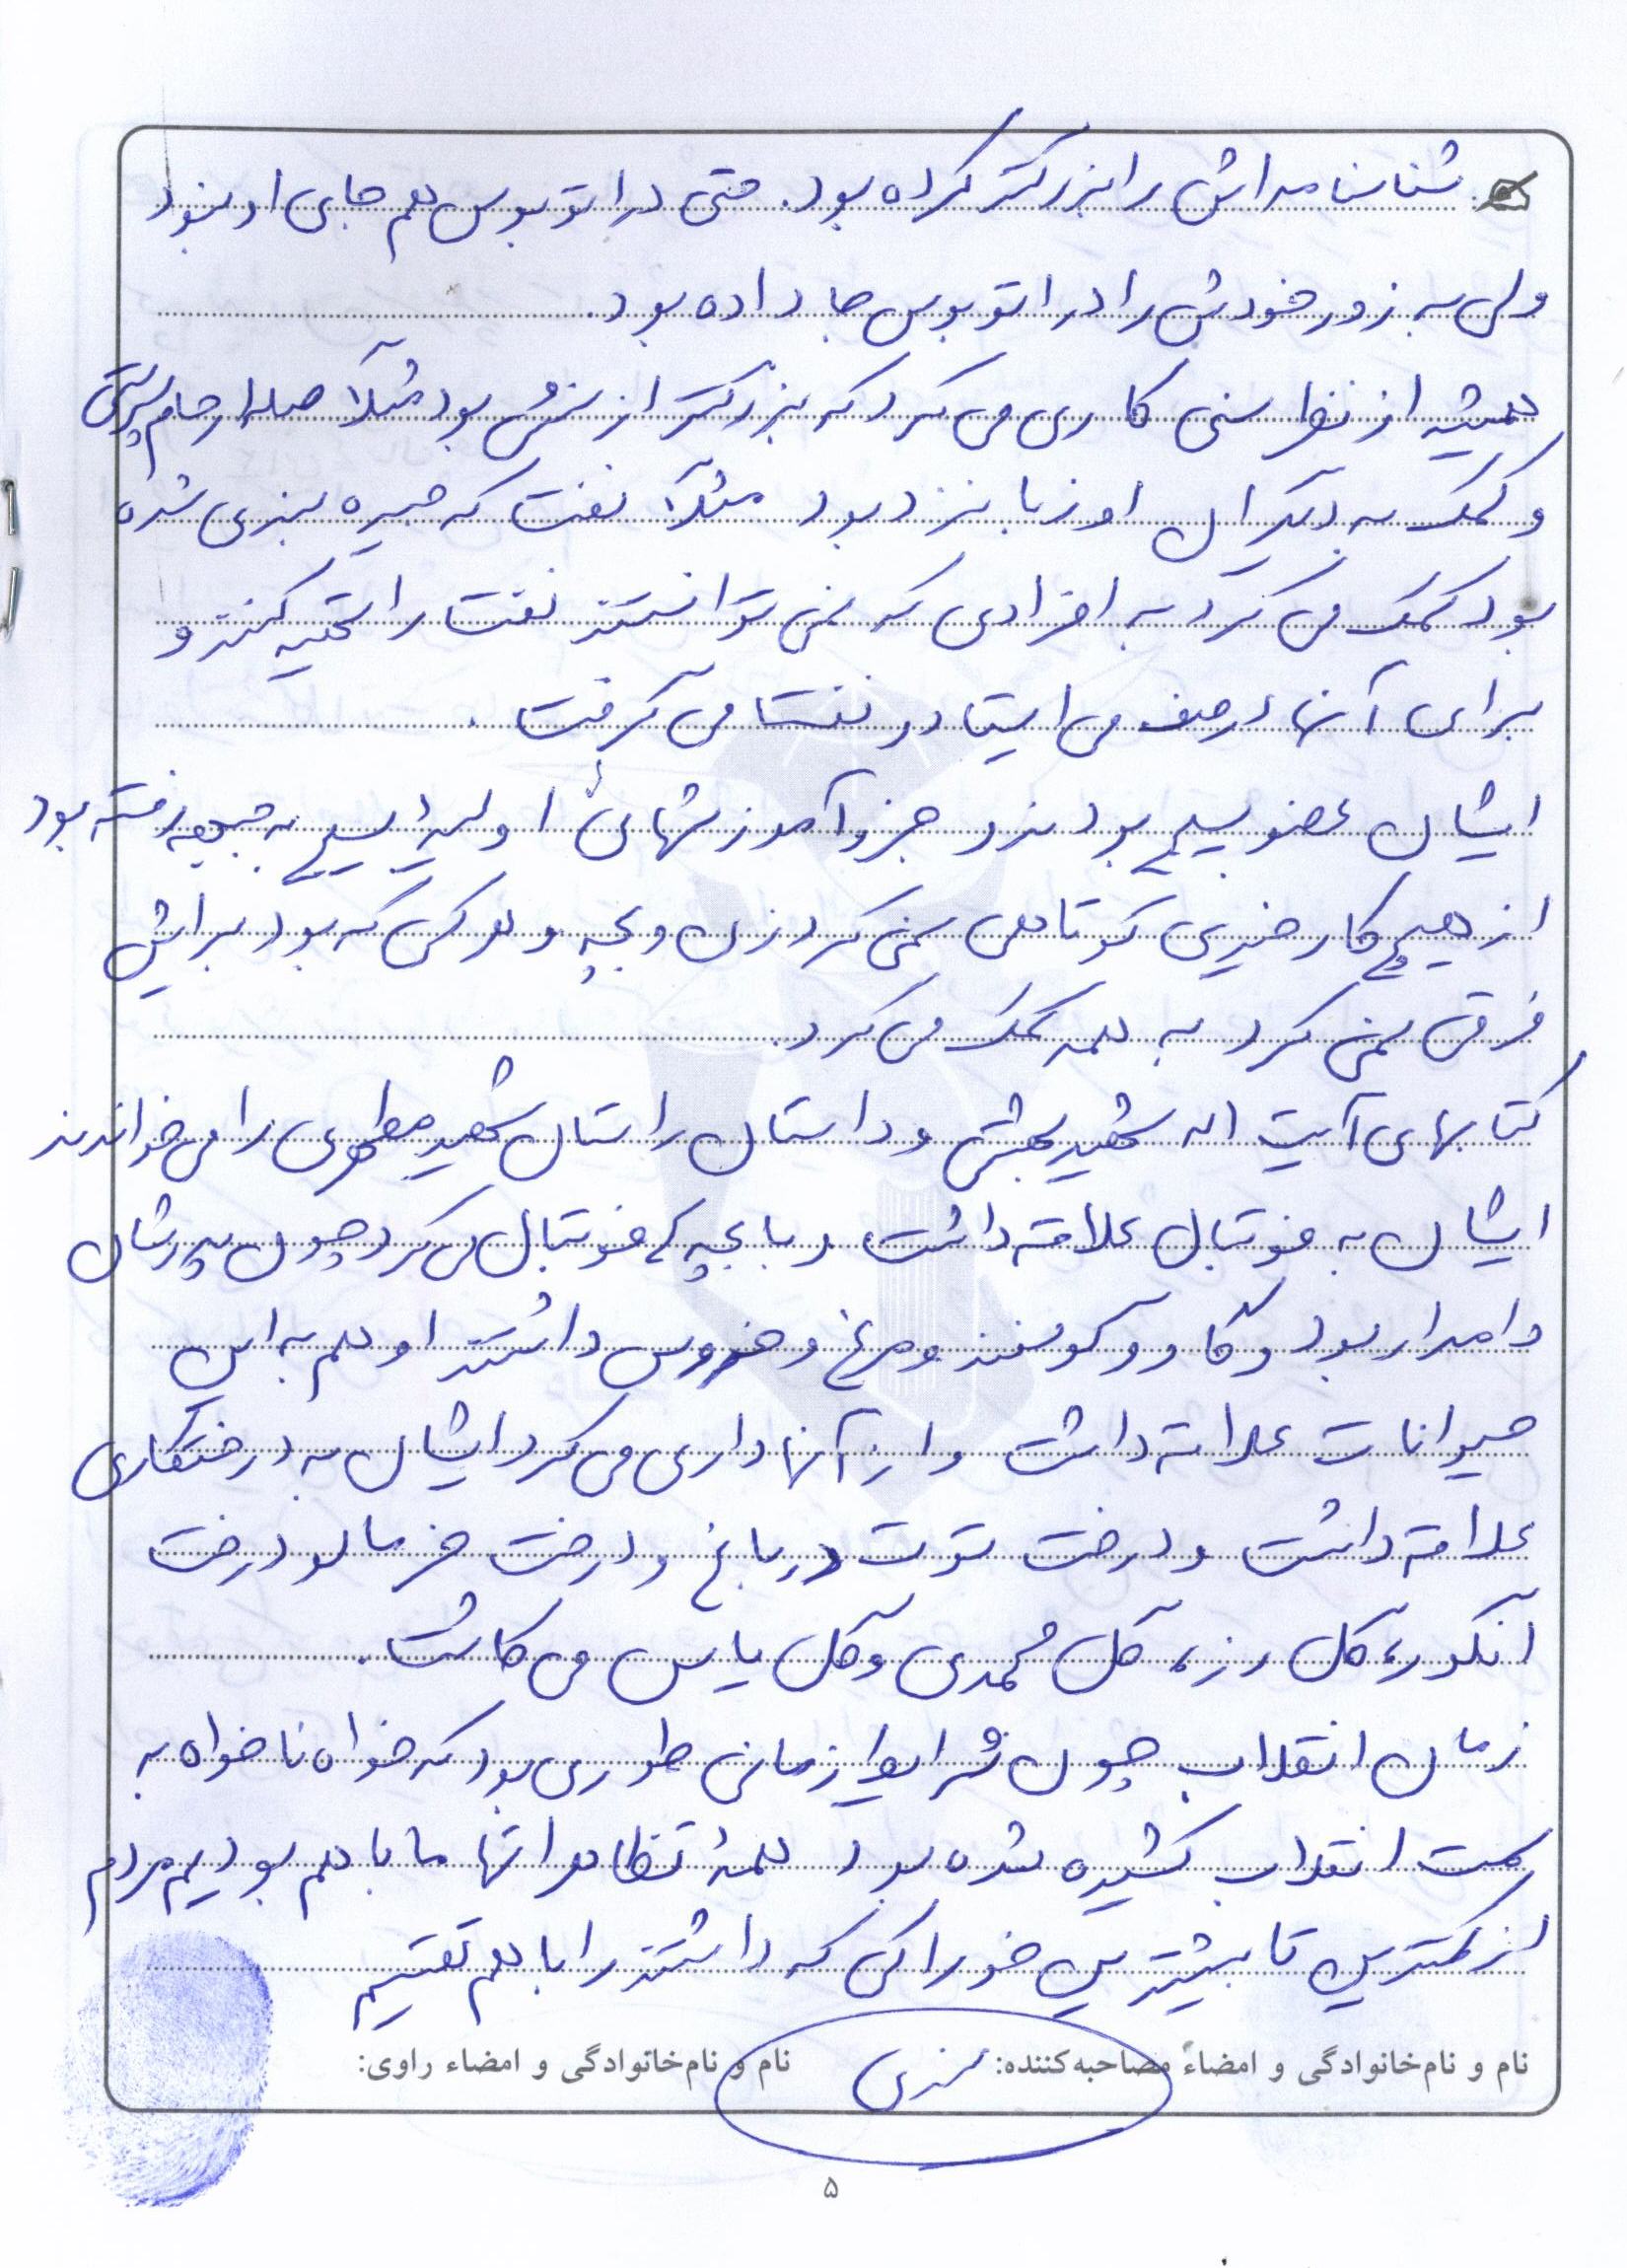 شناسنامه‌اش را بزرگتر کرده بود. حتی در اتوبوس هم جای او نبود
ولی به زور خودش را در اتوبوس جا داده بود.
همیشه از نظر سنی کاری می کرد که بزرگتر از سنش بود مثلاً صله ارحام
و کمک به دیگران او زبانزد بود مثلاً نفت که جیره بندی شده
بود کمک می کرد به افرادی که نمی توانستند نفت را تهیه کنند و
برای آنها در صف می ایستاد و نفت می گرفت.
ایشان عضو بسیج بودند و جزو آموزشهای اولیۀ بسیج به جبهه رفته بود
از هیچ کار خیری کوتاهی نمی کرد زن و بچه و هر کی که بود برایش
فرقی نمی کرد به همه کمک می کرد.
کتابهای آیت اله شهید بهشتی و داستان راستان شهید مطهری را می خواندند
ایشان به فوتبال علاقه داشت و با بچه ها فوتبال می کرد چون پدرشان
دامدار بود و گاو و گوسفند و مرغ و خروس داشتند او هم به این
حیوانات علاقه داشت و از آنها داری می کرد ایشان به درختکاری
علاقه داشت و درخت توت در باغ و درخت خرمالو درخت
انگور، گل رز، گل محمدی و گل یاس می کاشت.
زمان انقلاب چون شرایط زمانی طوری بود که خواه ناخواه به
سمت انقلاب کشیده شده بود همۀ تظاهراتها ما با هم بودیم مردم
از کمترین تا بیشترین خوراکی که داشتند را با هم تقسیم
نام و نام‌خانوادگی و امضاء مصاحبه‌کننده: نام و نام‌خانوادگی و امضاء راوی:
۵